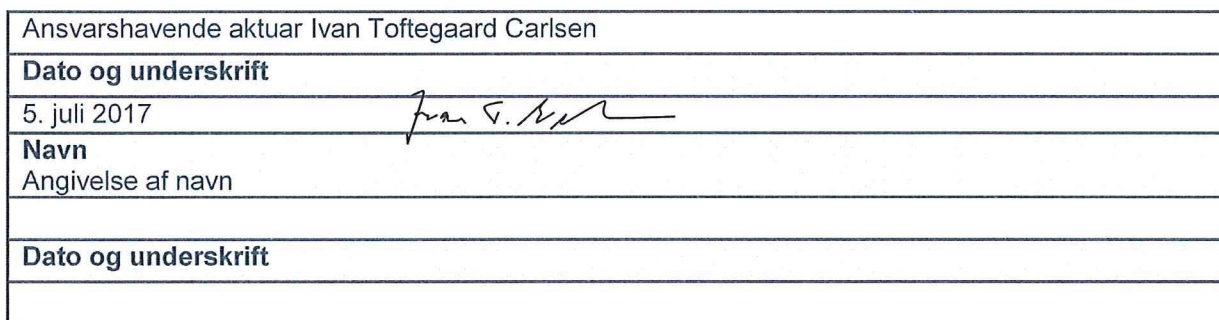 Ansvarshavende aktuar Ivan Toftegaard Carlsen
Dato og underskrift
5. juli 2017 Ivan T.
Navn
Angivelse af navn
Dato og underskrift